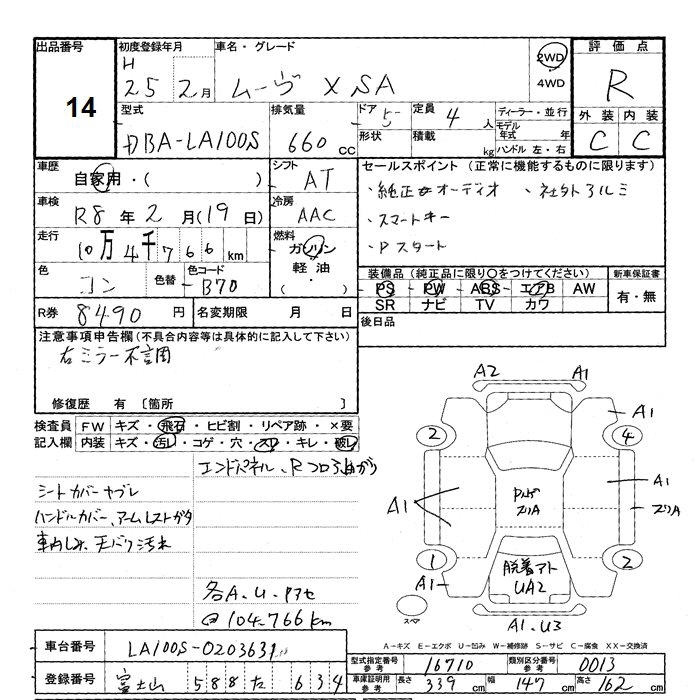 出品番号
14
初度登録年月
H 25 2月
車名・グレード
ムーヴ X SA
2WD
4WD
評価点
R
型式
DBA-LA100S
排気量
660 cc
ドア 5
形状
定員 4 人
積載 kg
ディーラー・並行
モデル年式 年
ハンドル 左・右
外装 内装
C C
車歴
自家用・( )
シフト
AT
セールスポイント (正常に機能するものに限ります)
・純正オーディオ ・社外アルミ
・スマートキー
・Pスタート
車検
R8 年 2 月(19 日)
冷房
AAC
走行
10万4千766 km
燃料
ガソリン
軽油
( ・ )
色
コン
色替
色コード
B70
装備品 (純正品に限り○をつけてください)
PS PW ABS エアB AW
SR ナビ TV カワ
新車保証書
有・無
R券 8490 円
名変期限 月 日
後日品
注意事項申告欄(不具合内容等は具体的に記入して下さい)
右ミラー不言周
修復歴 有 [箇所 ]
検査員記入欄
FW キズ・飛石・ヒビ割・リペア跡・×要
内装 キズ・汚レ・コゲ・穴・スリ・キレ・破レ
エンドパネル、Rフロア曲がり
シートカバーヤブレ
ハンドルカバー、アームレストガタ
車内しみ、天バリ汚れ
各A.U.Pアセ
@104.766km
A2 A1
A1
2 4
A1
A1
スリA
スリA
1 2
A1
脱着アト
UA2
スペア
A1.U3
A−キズ E−エクボ U−凹み W−補修跡 S−サビ C−腐食 XX−交換済
車台番号
LA100S-0203631
登録番号
富士山 588 た 634
型式指定番号 参考
16710
類別区分番号 参考
0013
車庫証明用 参考
長さ 339 cm
幅 147 cm
高さ 162 cm